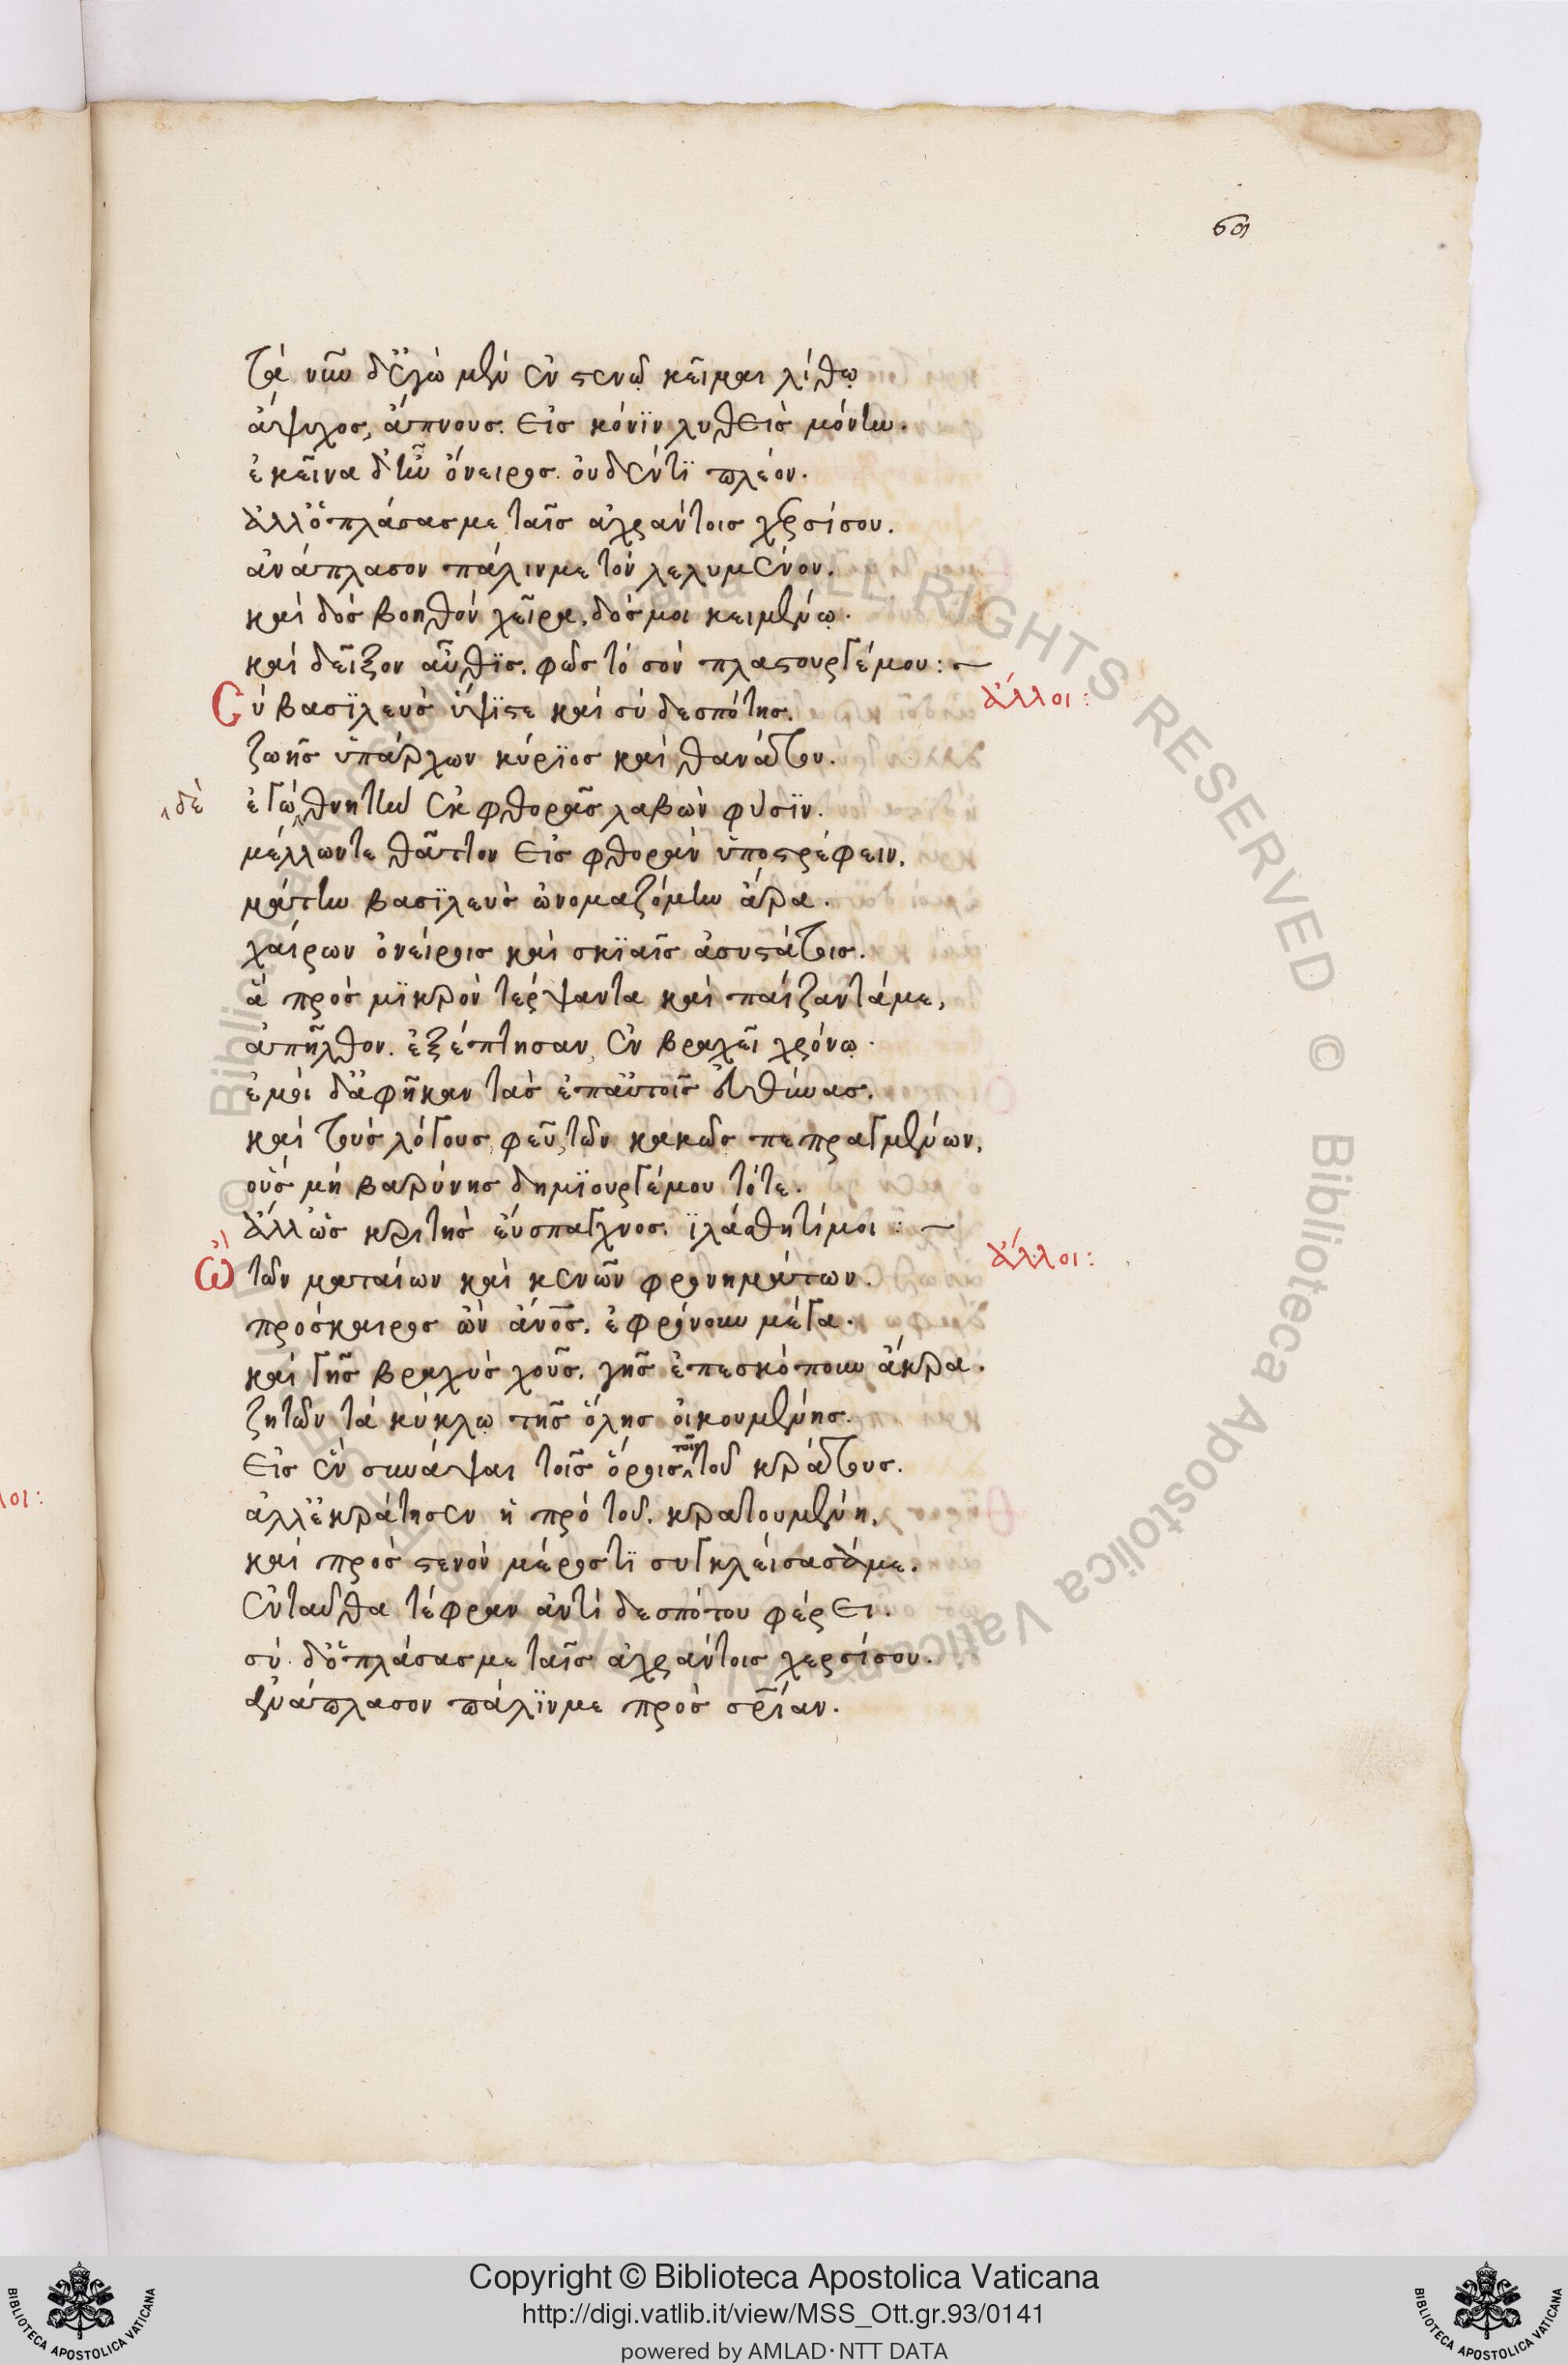 69
τὰ νῦν δ' ἐγὼ μὲν ἐν στενῷ κεῖμαι λίθῳ
ἄψυχος, ἄπνους. εἰς κόνϊν λυθεὶς μόνην.
ἐκεῖνα δ' ἦν ὄνειρος. οὐδέν τϊ πλέον.
ἀλλ' ὁ πλάσας με ταῖς ἀχράντοις χερσί σου.
ἀνάπλασον πάλιν με τὸν λελυμένον.
καὶ δὸς βοηθὸν χεῖρα, δός μοι κειμένῳ.
καὶ δεῖξον αὖθϊς. φῶς τὸ σὸν πλαστουργέ μου:~
Σὺ βασϊλεὺς ὕψϊστε καὶ σὺ δεσπότης.
ἄλλοι:
ζωῆς ὑπάρχων κύρϊος καὶ θανάτου.
δὲ
ἐγὼ θνητὴν ἐκ φθορᾶς λαβὼν φύσϊν.
μέλλων τε θᾶττον εἰς φθορὰν ὑποστρέφειν.
μάτην βασϊλεὺς ὠνομαζόμην ἄρα.
χαίρων ὀνείροις καὶ σκϊαῖς ἀσυστάτοις.
ἃ πρὸς μϊκρὸν τέρψαντα καὶ παίξαντά με,
ἀπῆλθον. ἐξέπτησαν ἐν βραχεῖ χρόνῳ.
ἐμοὶ δ' ἀφῆκαν τὰς ἐπ' αὐτοῖς εὐθύνας.
καὶ τοὺς λόγους, φεῦ, τῶν κακῶς πεπραγμένων.
οὓς μὴ βαρύνης δημϊουργέ μου τότε.
ἀλλ' ὡς κριτὴς εὔσπαγχνος. ϊλάσθητί μοι:~
Ὢ τῶν ματαίων καὶ κενῶν φρονημάτων.
ἄλλοι:
πρόσκαιρος ὢν ἄνος. ἐφρόνουν μέγα.
καὶ γῆς βραχὺς χοῦς. γῆς ἐπεσκόπουν ἄκρα.
ζητῶν τὰ κύκλῳ τῆς ὅλης οἰκουμένης.
εἰς ἓν συνάψαι τοῖς ὅροις τοῖς τοῦ κράτους.
ἀλλ' ἐκράτησεν ἡ πρὸ τοῦ. κρατουμένη.
καὶ πρὸς στενὸν μέρος τϊ συγκλείσασά με.
ἐνταῦθα τέφραν ἀντὶ δεσπότου φέρει.
σὺ δ' ὁ πλάσας με ταῖς ἀχράντοις χερσί σου.
ἀνάπλασον πάλϊν με πρὸς σρίαν.
Copyright © Biblioteca Apostolica Vaticana
http://digi.vatlib.it/view/MSS_Ott.gr.93/0141
powered by AMLAD·NTT DATA